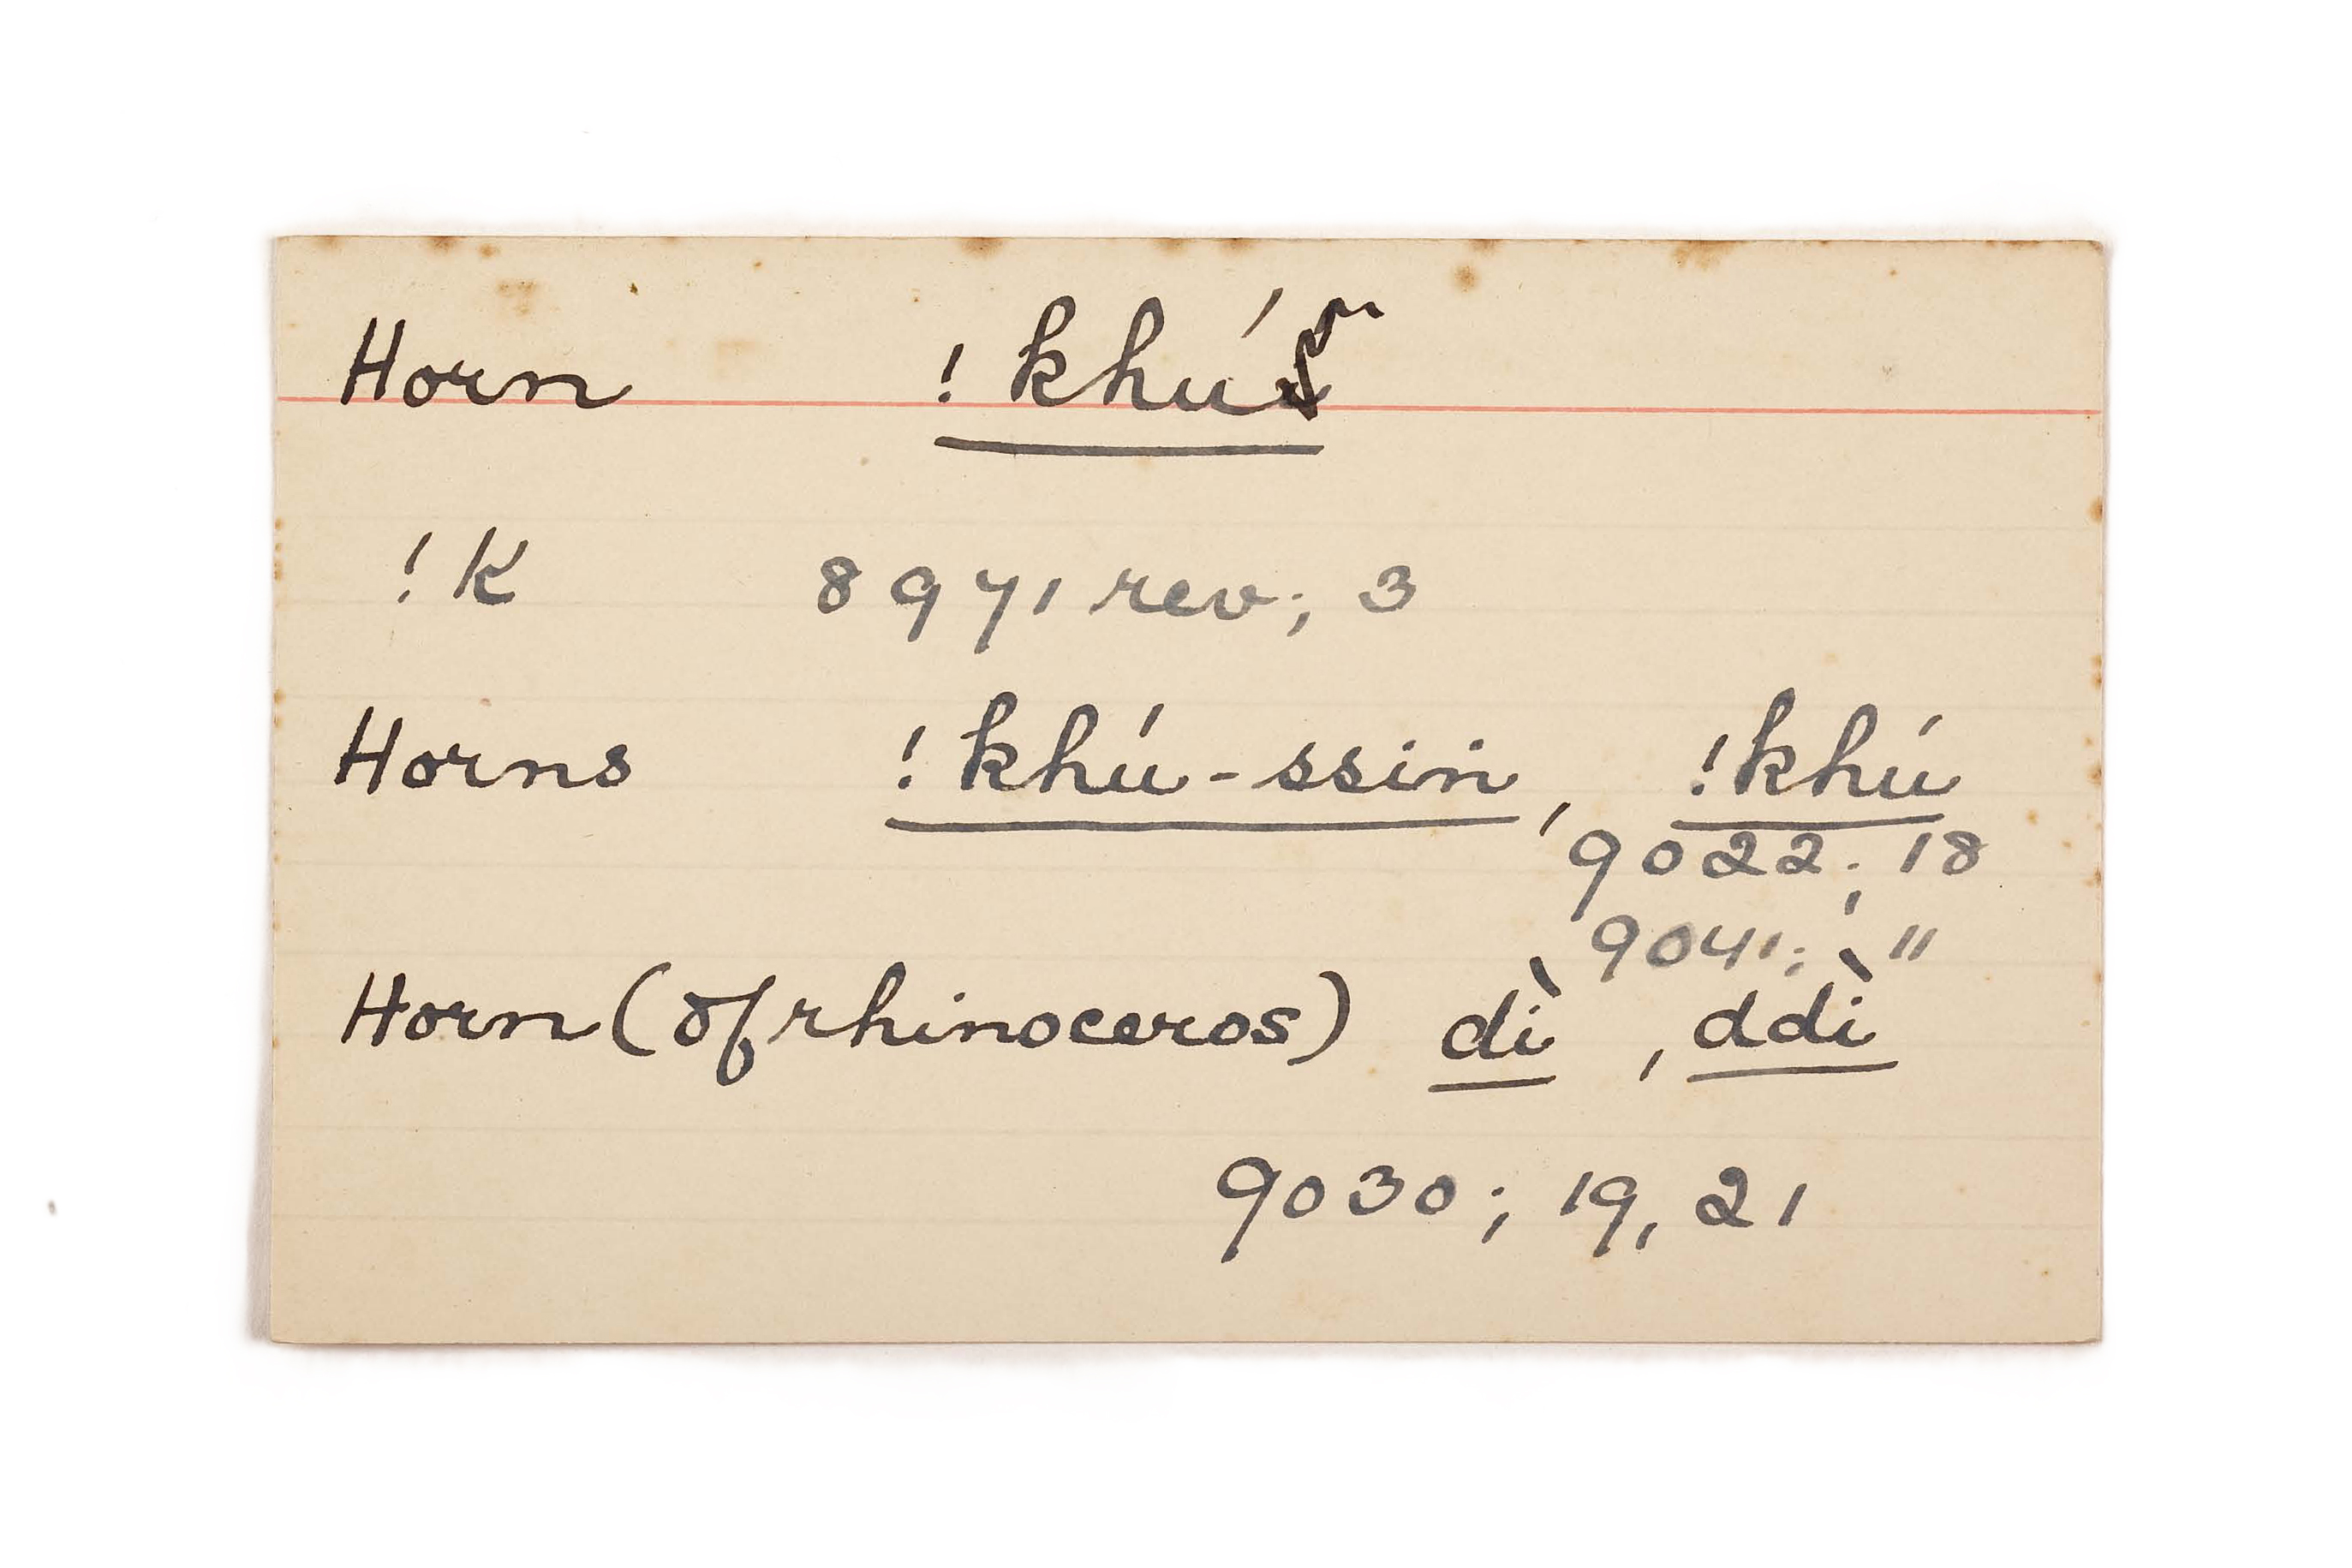 Horn !khú
!K 8971 rev; 3
Horns !khú-ssin, !khú
9022; 18
9041; "
Horn (of rhinoceros) dì, ddì
9030; 19, 21